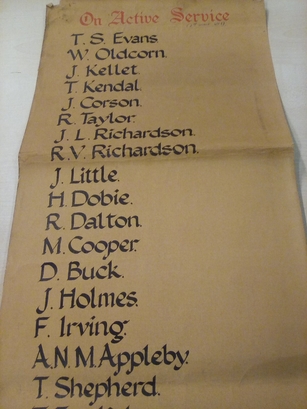 On Active Service
T. S. Evans
W. Oldcorn.
J. Kellet.
T. Kendal.
J. Corson.
R. Taylor.
J. L. Richardson.
R.V. Richardson.
J. Little.
H. Dobie.
R. Dalton.
M. Cooper.
D. Buck.
J. Holmes.
F. Irving.
A.N.M.Appleby.
T. Shepherd.